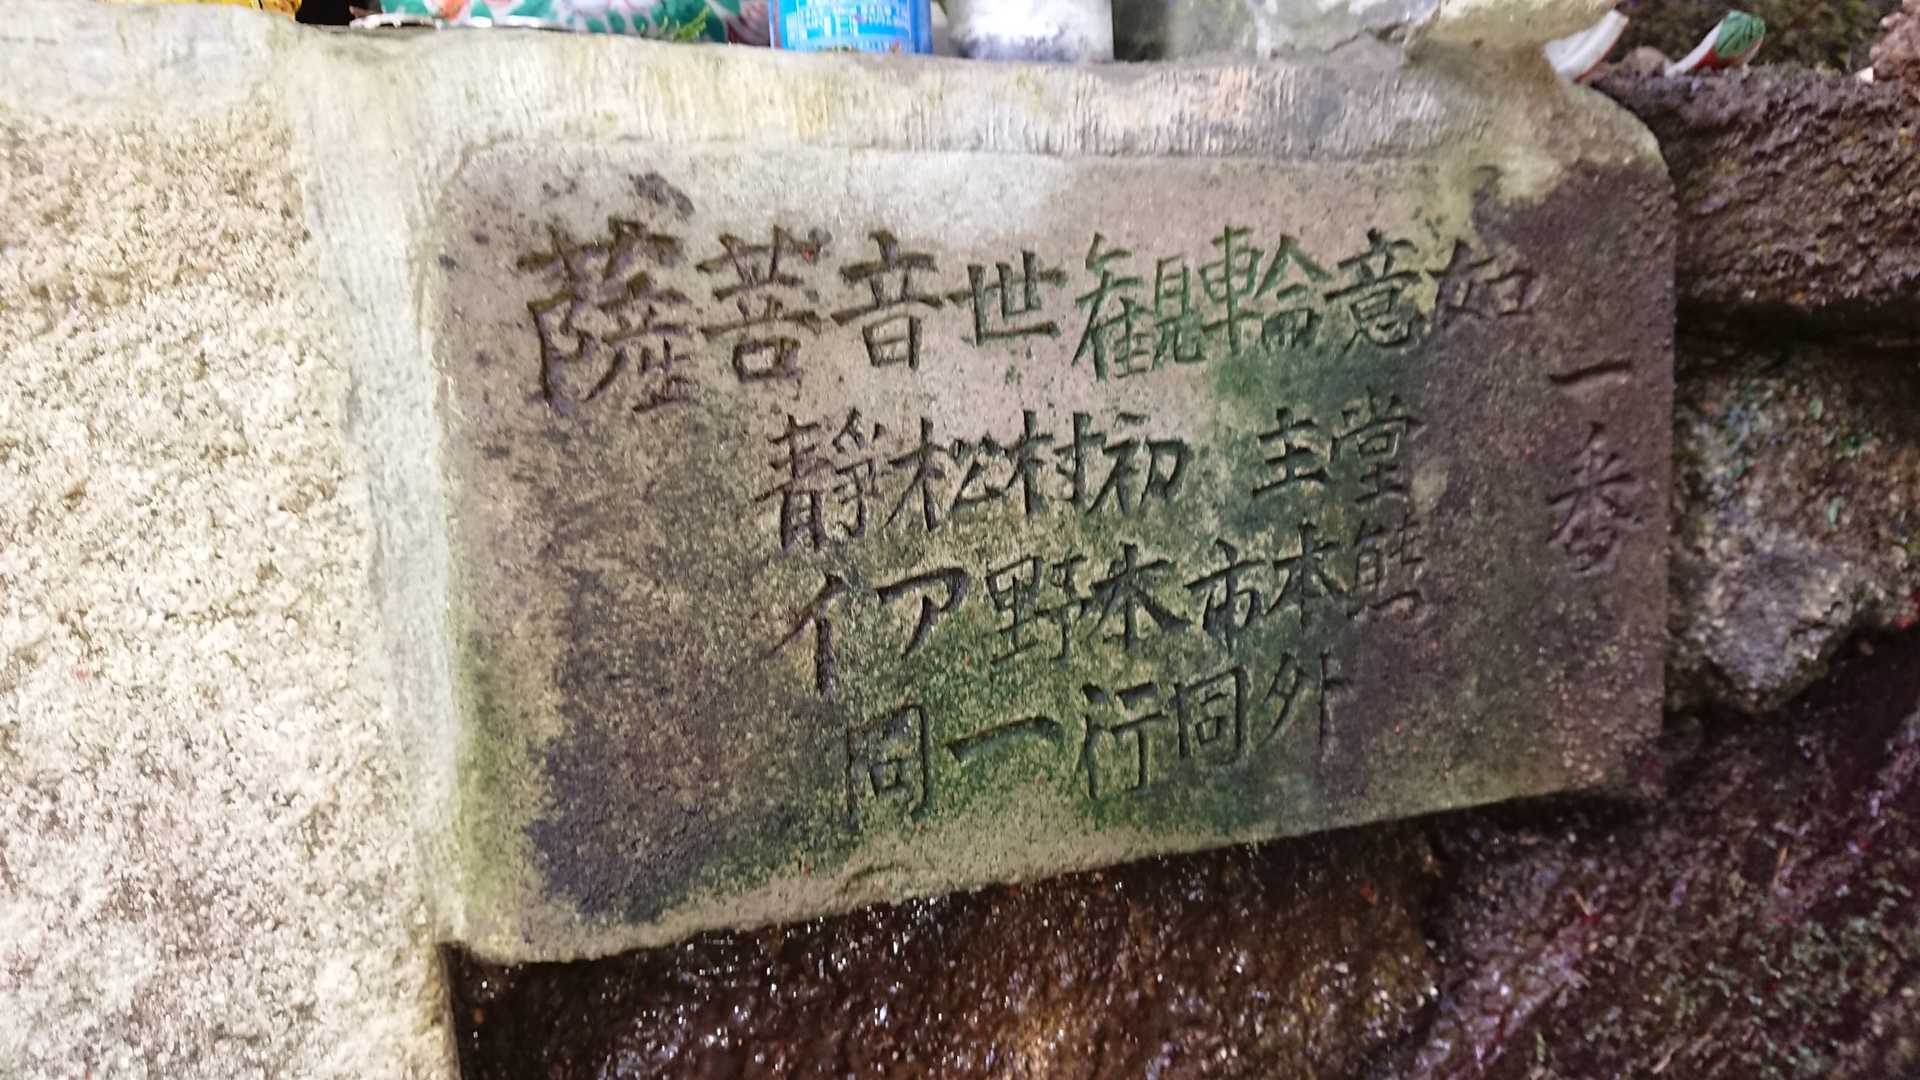 一番
如意輪観世音菩薩
堂主 初村松靜
熊本市本野アイ
外同行一同